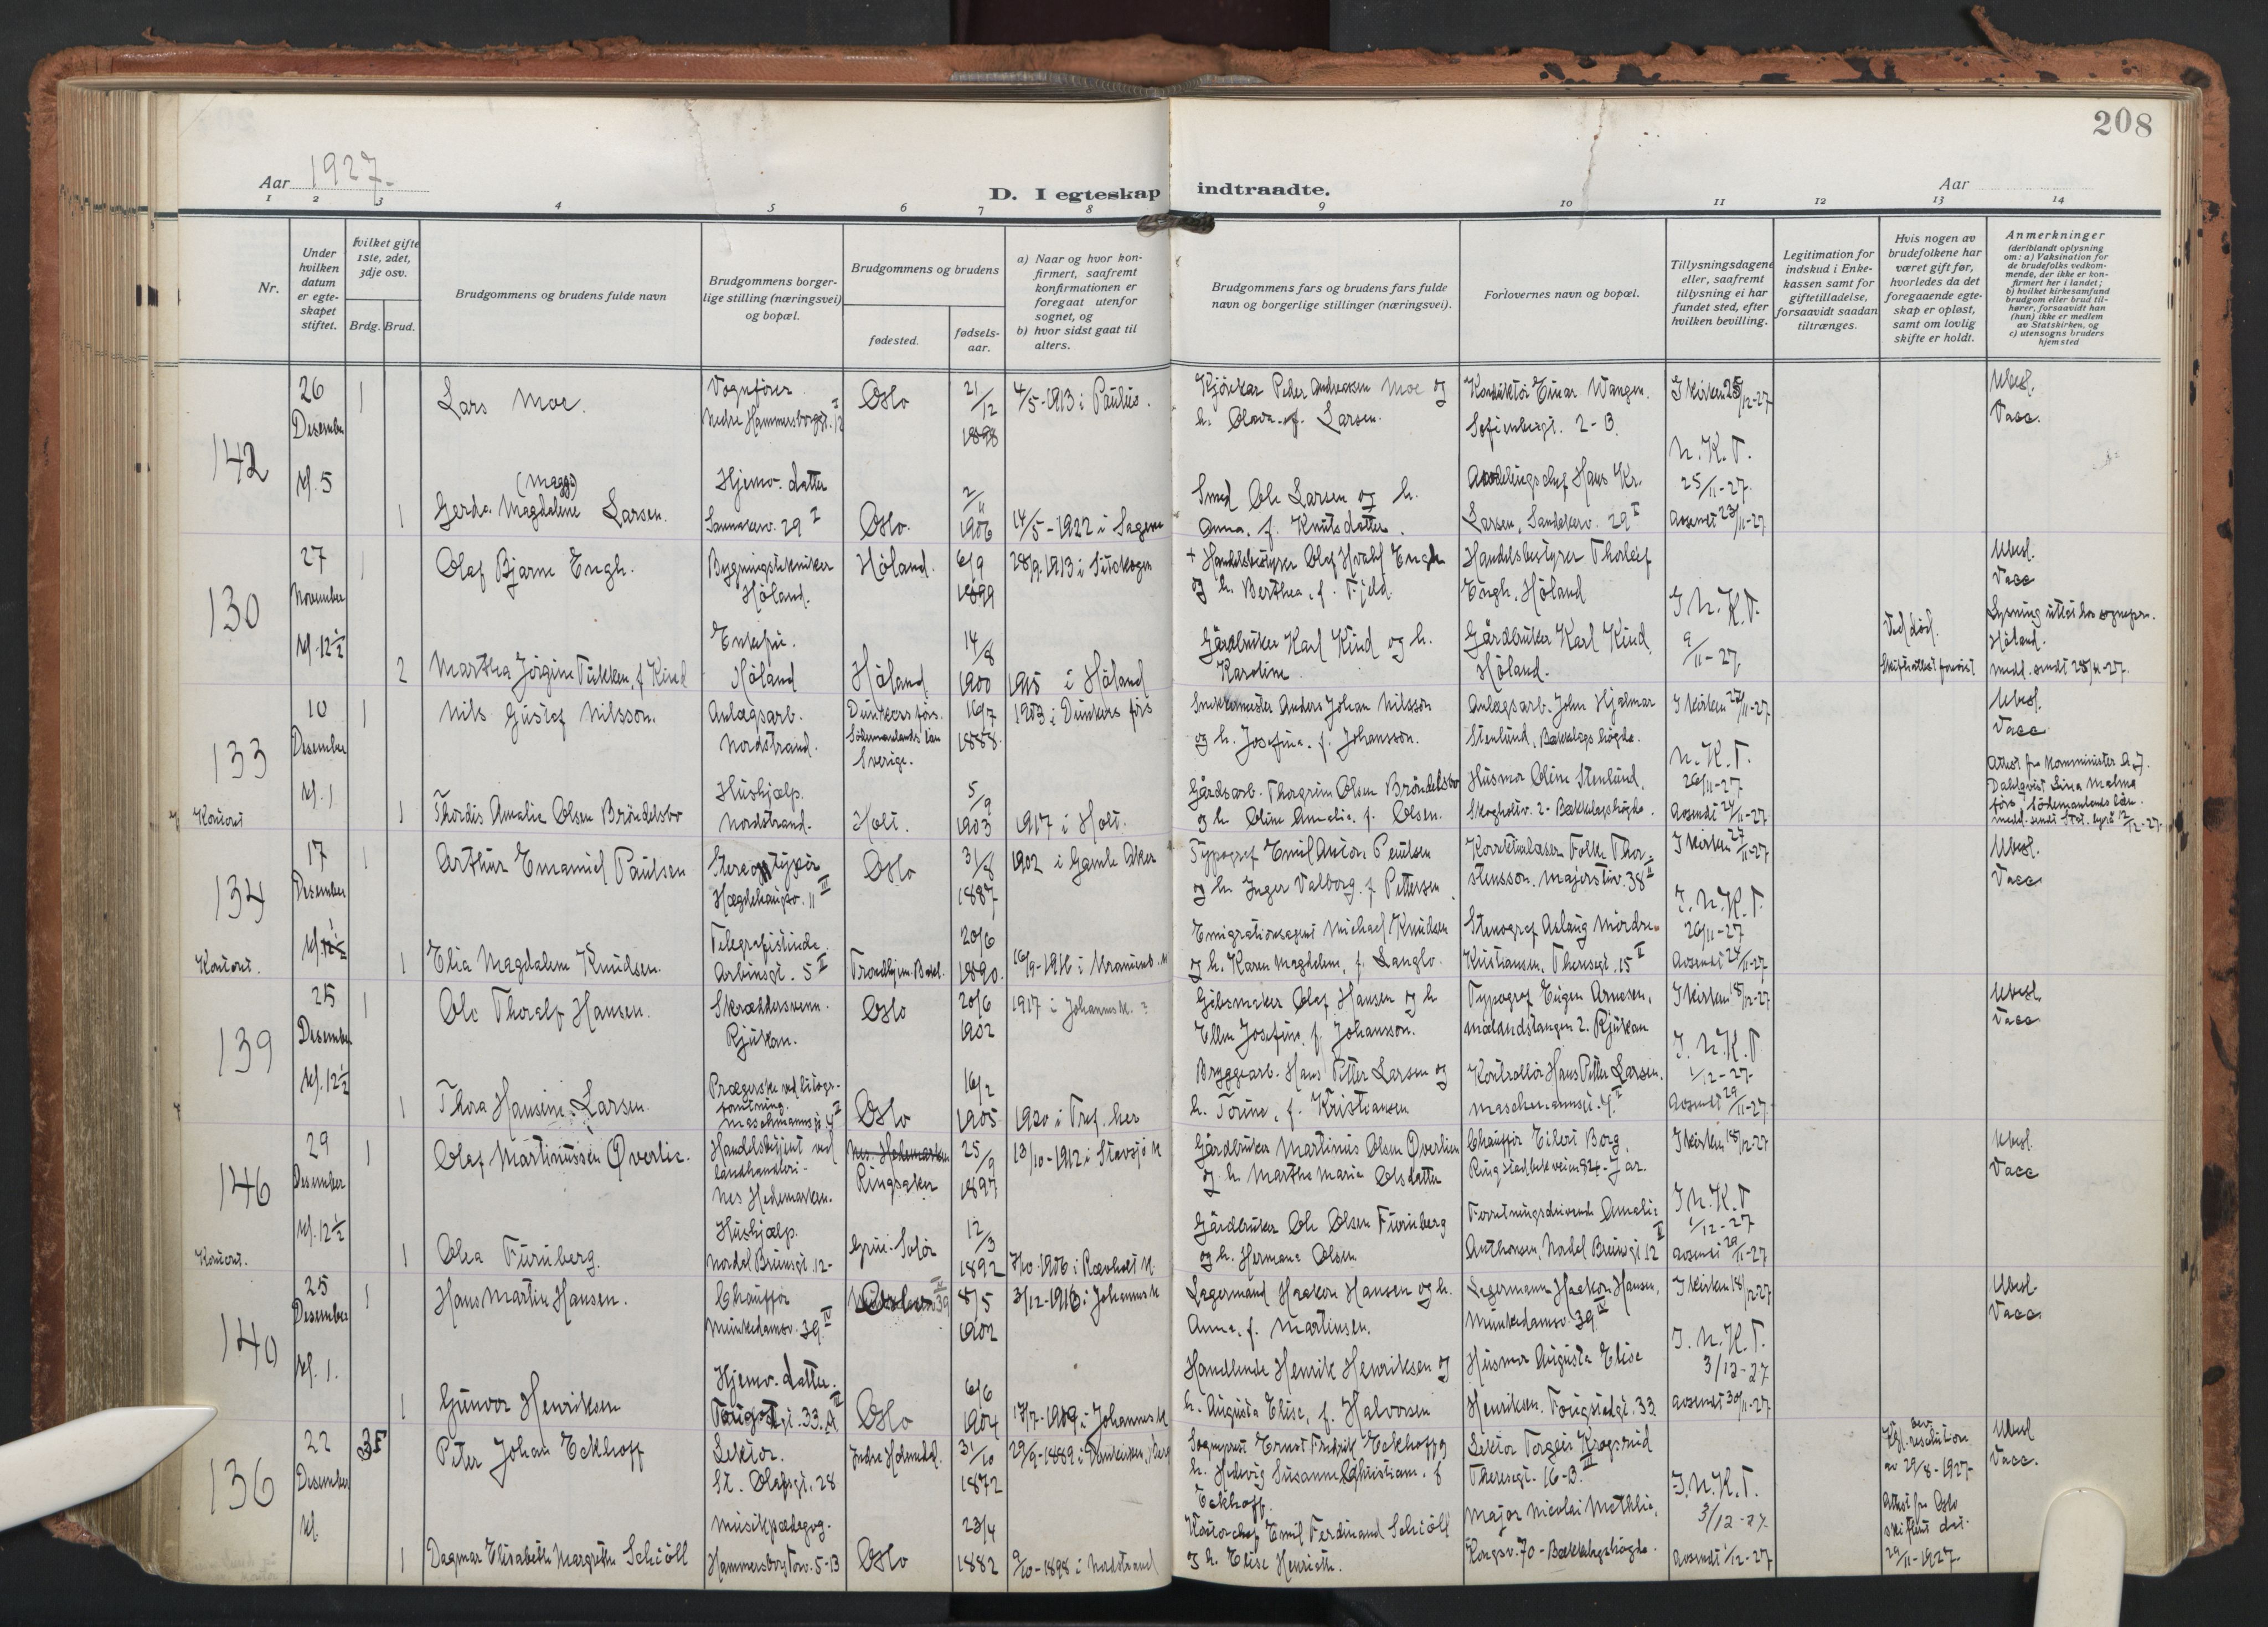 208
Aar 1927.
D. I egteskap indtraadte.
Aar
1 2 3 4 5 6 7 8 9 10 11 12 13 14
Nr.
Under hvilken datum er egteskapet stiftet.
Hvilket gifte 1ste, 2det, 3dje osv.
Brdg. Brud.
Brudgommens og brudens fulde navn
Brudgommens borgerlige stilling (næringsvei) og bopæl.
Brudgommens og brudens
fødested.
fødselsaar.
a) Naar og hvor konfirmert, saafremt konfirmationen er foregaat utenfor sognet, og
b) hvor sidst gaat til alters.
Brudgommens fars og brudens fars fulde navn og borgerlige stillinger (næringsvei).
Forlovernes navn og bopæl.
Tillysningsdagene eller, saafremt tillysning ei har fundet sted, efter hvilken bevilling.
Legitimation for indskud i Enkekassen samt for giftetilladelse, forsaavidt saadan tiltrænges.
Hvis nogen av brudefolkene har været gift før, hvorledes da det foregaaende egteskap er opløst, samt om lovlig skifte er holdt.
Anmerkninger
(deriblandt oplysning om: a) Vaksination for de brudefolks vedkommende, der ikke er konfirmert her i landet; b) hvilket kirkesamfund brudgom eller brud tilhører, forsaavidt han (hun) ikke er medlem av Statskirken, og c) utensogns bruders hjemsted
142
26 Desember Kl. 5
1 Lars Moe.
Vognfører
Nedre Hammersborggt. 12 I
Oslo
21/12 1898
4/5-1913 i Paulus.
Kjørekar Peder Andreasen Moe og
h. Olava f. Larsen.
Konduktør Einar Wangen.
Sofienbergt. 2-B.
I kirken 25/12-27
Ubesl.
Vacc.
(Maggi)
1 Gerda Magdalene Larsen.
Hjemv. datter
Sannakerv. 29 I
Oslo.
2/11 1906
14/5-1922 i Sagene
Smed Ole Larsen og h.
Anna, f. Knutsdatter.
Avdelingschef Hans Kr.
Larsen, Sandakerv. 29 I
N.K.T.
25/11-27.
Avsendt 23/11-27
130
27 November Kl. 12½
1 Olaf Bjarne Engh.
Bygningstekniker
Høland.
Høland.
6/9 1899
28/9-1913 i Setskogen
+ Handelsbestyrer Olaf Hvahl Engh
og h. Berthea, f. Fjeld.
Handelsbestyrer Thorleif
Engh, Høland
I N.K.T.
9/11-27.
Ubesl.
Vacc
Lysning uttat hos sognepr.
Høland.
medd. sendt 28/11-27.
2 Martha Jørgine Tukken, f. Kind
Enkefru.
Høland
Høland
14/8 1900
1915 i Høland
Gårdbruker Karl Kind og h.
Karoline
Gårdbruker Karl Kind,
Høland.
Ved død.
Skifteattest forevist
133
10 Desember Kl. 1
Kontoret
1 Nils Gustaf Nilsson.
Anlægsarb.
Nordstrand.
Dunkers förs.
Södermanlands län
Sverige.
16/7 1888.
1903 i Dunkers förs
Snekkermester Anders Johan Nilsson
og h. Josefina, f. Johansson.
Anlægsarb. John Hjalmar
Stenlund, Bækkelagshøgda.
I kirken 27/11-27
N.K.T.
26/11-27
Avsendt 24/11-27
Ubesl.
Vacc
Attest fra Komminister
1 Thordis Amalie Olsen Brøndelsbo
Hushjælp.
Nordstrand.
Holt.
5/9 1903
1917 i Holt.
Gårdsarb. Thorgrim Olsen Brøndelsbo
og h. Oline Amalie, f. Olsen.
Husmor Oline Stenlund,
Skogholtv. 2-Bækkelagshøgda.
134
17 Desember Kl.
Kontoret.
1 Arthur Emanuel Paulsen
Stereotypør
Hægdehaugsv. 11 III
Oslo
31/8 1887
1902 i Gamle Aker
Typograf Emil Anton Paulsen
og h. Inger Valborg, f. Pettersen.
Korrekturlæser Folke Thorstensson. Majorstuv. 38 II
I kirken 27/11-27
I.N.K.T.
26/11-27
Avsendt 24/11-27
Ubesl.
Vacc
1 Elia Magdalene Knudsen.
Telegrafistinde.
Arbinsgt. 5 II
Trondhjem
20/6 1890.
Emigrationsagent Michael Knudsen
og h. Karen Magdalene, f. Langlo.
Stenograf Aslaug Mordre-
Kristiansen, Theresegt. 15 II
139
25 Desember Kl. 12½
1 Ole Thoralf Hansen.
Skræddersvenn.
Rjukan.
Oslo
20/6 1902
1917 i Johannesk. ?
Gibsmaker Olaf Hansen og h
Ellen Josefine, f. Johansson.
Typograf Eugen Arnesen,
Mælandstangen 2. Rjukan
I kirken 18/12-27
I.N.K.T
1/12-27
Avsendt 29/11-27.
Ubesl.
Vacc
1 Thora Hansine Larsen.
Prægerske ved litogr.-
forretning.
Maschmannsgt. 4 II
Oslo
16/2 1905
1920 i Tref. her
Bryggearb. Hans Petter Larsen og
h. Torine, f. Kristiansen
Kontrollør Hans Petter Larsen.
Maschmannsgt. 4 I
146
29 Desember Kl. 12½
Kontoret.
1 Olaf Martinussen Øverlie.
Handelsbetjent ved
landhandleri-
Nes Hedemarken.
Nes. Hedemarken
Ringsaker
25/9 1897
13/10-1912 i Stavsjø K
Gårdbruker Martinus Olsen Øverlien
og h. Marthe Marie Olsdatter
Chauffør Eilert Borg,
Ringstadbekveien 824-Jar.
I kirken 18/12-27
I N.K.T
1/12-27
Avsendt 29/11-27
Ubesl.
Vacc
1 Olea Furuberg.
Hushjælp.
Nordal Brunsgt. 12-
Grue-Solør
12/3 1892
7/10-1906 i Rævholt K.
Gårdbruker Ole Olsen Furuberg
og h. Hermana Olsen
Forretningsdrivende Amalie
Anthonsen, Nordal Brunsgt 12 II
140
25 Desember Kl. 1.
1 Hans Martin Hansen.
Chauffør
Munkedamsv. 39 IV
Oslo
8/5 1902
3/12-1916 i Johannes K
Lagermand Haakon Hansen og h.
Anna, f. Martinsen.
Lagermann Haakon Hansen,
Munkedamsv. 39 IV
I kirken 18/12-27
I.N.K.T.
3/12-27
Avsendt 30/11-27
Ubesl.
Vacc.
1 Gunvor Henriksen
Hjemv. datter.
Fougstadgt. 33.A III
Oslo
6/6 1904
17/7-1919 i Johannes K
Handlende Henrik Henriksen og
h. Augusta Elise, f. Halvorsen
Husmor Augusta Elise
Henriksen. Fougstadgt. 33.
136
22 Desember Kl.
Peter Johan Eckhoff
Lektor.
St. Olafsgt. 28
Indre Holmedal.
31/10 1872
Sogneprest Ernst Fredrik Eckhoff og
h. Hedevig Susanne Christiane, f
Eckhoff.
Lektor Torgeir Krogsrud
Theresegt. 16-B. III
I.N.K.T.
3/12-27.
Avsendt 1/12-27
Kgl. resolution
av 29/8-1927
Attest fra Oslo
29/11-1927.
Ubesl
Vacc.
1 Dagmar Elisabeth Margrethe Schiøll
Musikpædagog.
Hammersborg Torv. 5-B
Oslo
23/4 1882
9/10-1898 i Nordstrand
Kontorchef Emil Ferdinand Schiøll
og h. Elise Henriette.
Major Nicolai Methlie,
Kongsv. 70-Bækkelagshøgda.